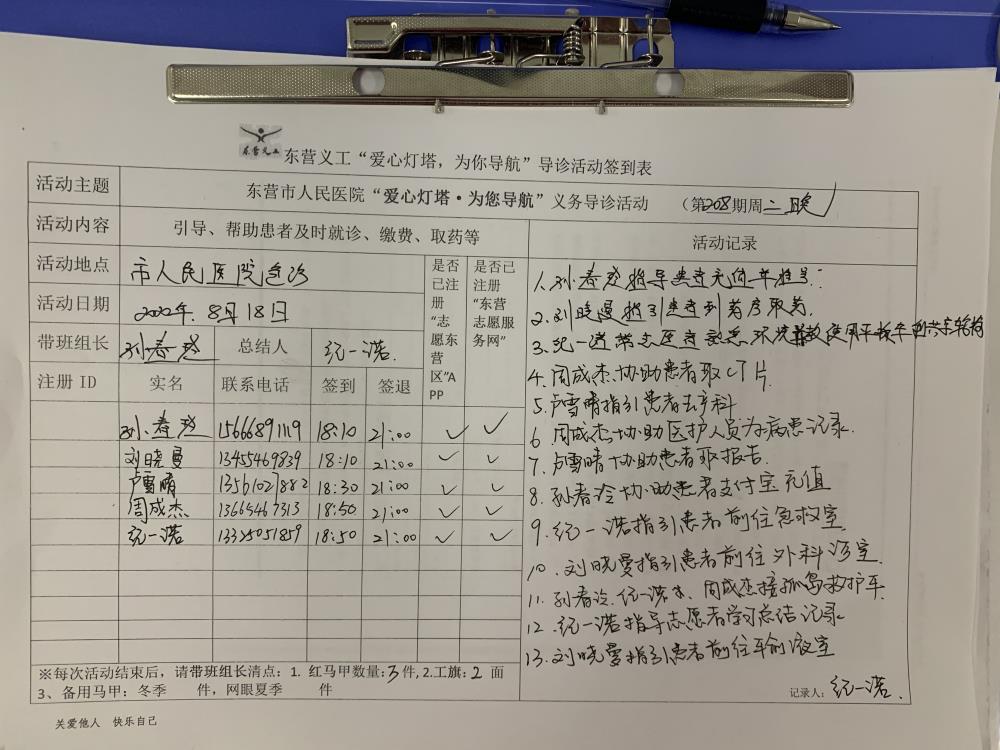 东营义工
东营义工“爱心灯塔，为你导航”导诊活动签到表
活动主题 东营市人民医院“爱心灯塔·为您导航”义务导诊活动 （第208期周二晚）
活动内容 引导、帮助患者及时就诊、缴费、取药等 活动记录
活动地点 市人民医院急诊 是否已注册“志愿东营区”APP 是否已注册“东营志愿服务网”
活动日期 8月18日
带班组长 孙春 总结人 纪一诺.
注册 ID 实名 联系电话 签到 签退
孙春 15666891119 18:10 21:00 ✓ ✓
刘晓曼 13455469839 18:10 21:00 ✓ ✓
卢雪晴 13561027882 18:30 21:00 ✓ ✓
周成杰 13665467313 18:50 21:00 ✓ ✓
纪一诺 13325051859 18:50 21:00 ✓ ✓
1.孙春 指导患者
2.刘晓曼指引患者到药房取药.
3.纪一诺带志愿者熟悉环境 使用平板车
4.周成杰协助患者取CT片
5.卢雪晴指引患者去产科
6 周成杰协助医护人员为病患记录.
7.卢雪晴协助患者取报告.
8.孙春 协助患者支付宝充值
9.纪一诺指引患者前往急救室
10.刘晓曼指引患者前往外科诊室
11.孙春 纪一诺 、周成杰接孤岛救护车
12.纪一诺指导志愿者学习总结记录
13.刘晓曼指引患者前往输液室
※每次活动结束后，请带班组长清点：1. 红马甲数量:3件,2.工旗:2 面
3、备用马甲：冬季 件，网眼夏季 件
记录人: 纪一诺.
关爱他人 快乐自己